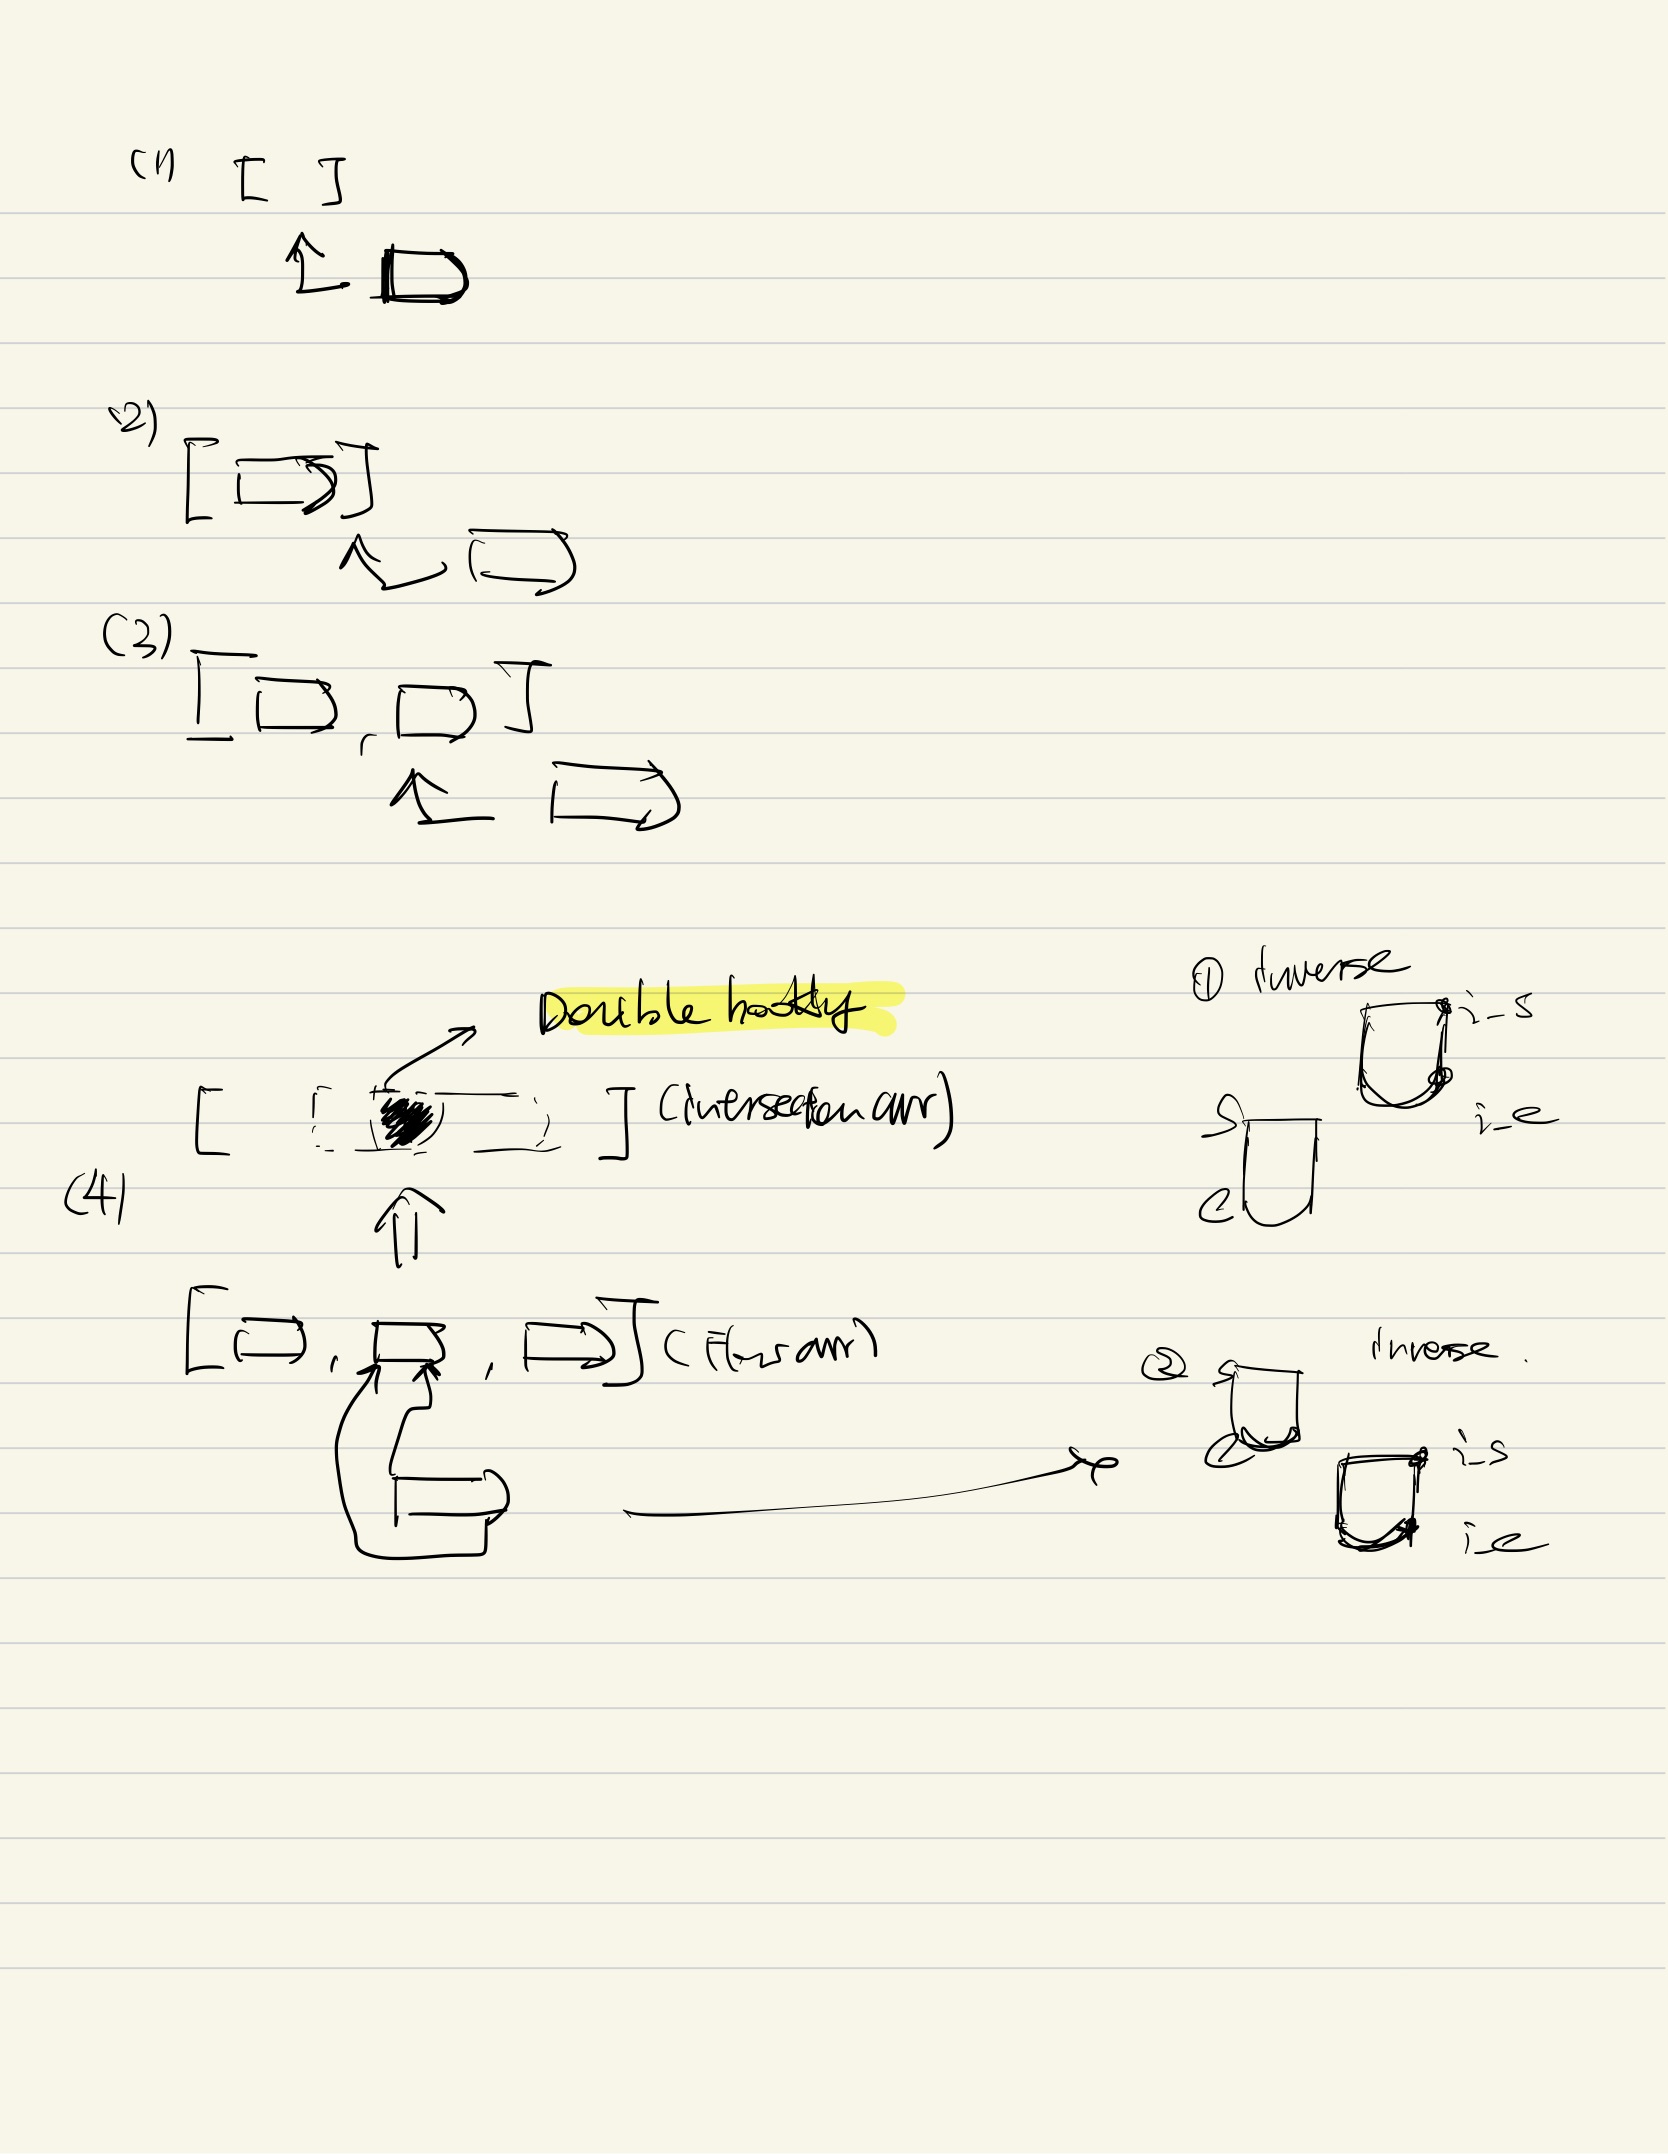 (1) [ ]
(2) [ ]
(3) [ , ]
Double
[ ] (intersection arr)
(4)
[ , , ] (First arr)
① Inverse
i_s
s
i_e
e
② s
Inverse.
e
i_s
i_e